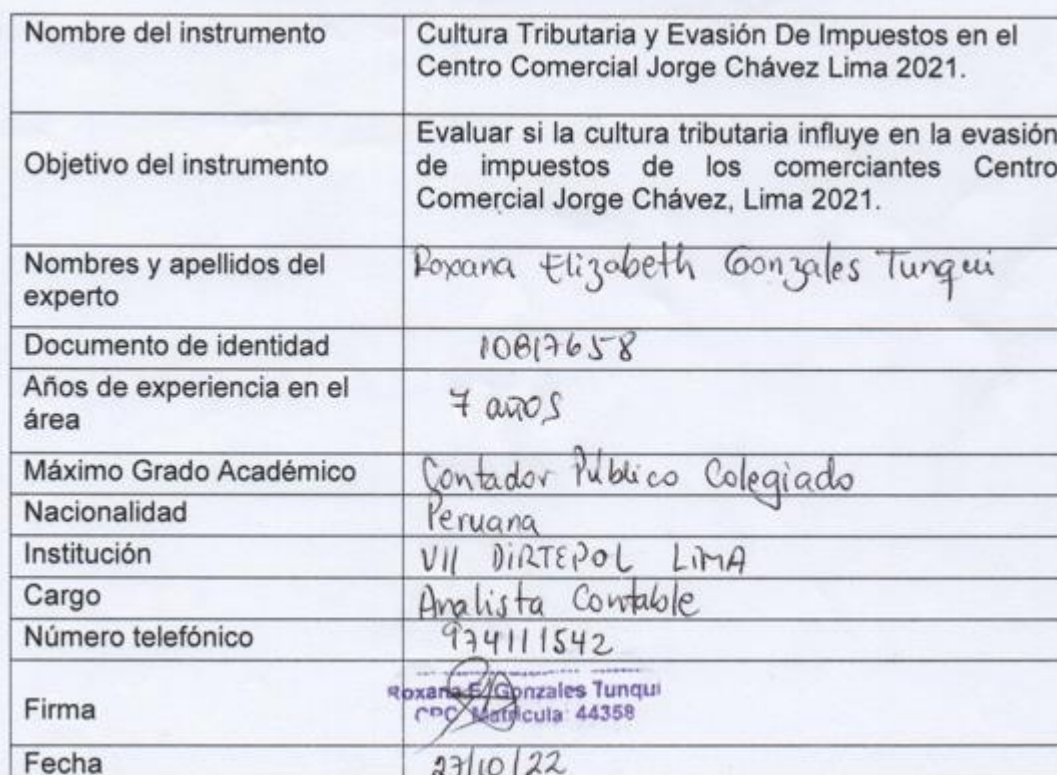 Nombre del instrumento
Cultura Tributaria y Evasión De Impuestos en el
Centro Comercial Jorge Chávez Lima 2021.
Objetivo del instrumento
Evaluar si la cultura tributaria influye en la evasión
de impuestos de los comerciantes Centro
Comercial Jorge Chávez, Lima 2021.
Nombres y apellidos del
experto
Roxana Elizabeth Gonzales Tunqui
Documento de identidad
10817658
Años de experiencia en el
área
7 años
Máximo Grado Académico
Contador Público Colegiado
Nacionalidad
Peruana
Institución
VII DIRTEPOL LIMA
Cargo
Analista Contable
Número telefónico
974111542
Firma
Roxana E. Gonzales Tunqui
CPC Matricula: 44358
Fecha
27/10/22